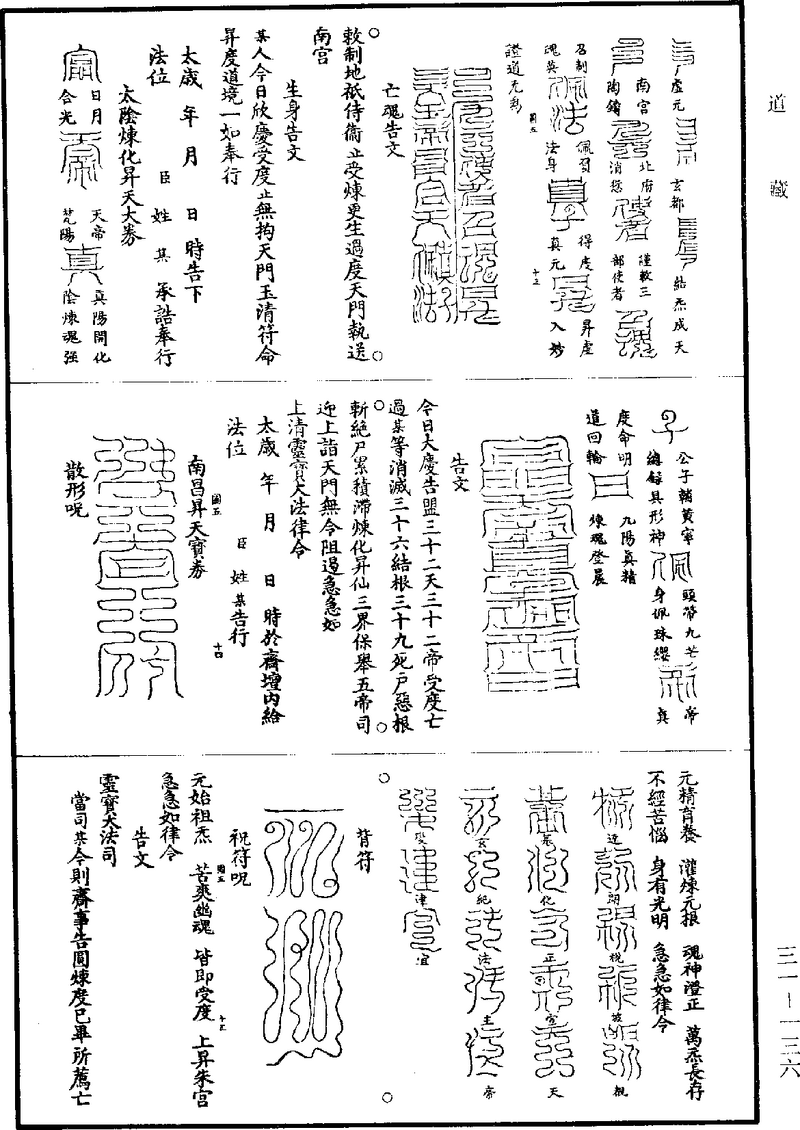 道藏
虛元
玄都
結炁成天
南宮
陶鑄
北府
消愆
謹敕三
部使者
召制
魂英
佩習
法身
得度
真元
昇虛
入妙
證道无為
圖五
十三
亡魂告文
敕制地祇侍衞止受煉更生過度天門執送
南宮
生身告文
某人今日欣慶受度止無拘天門玉清符命
昇度道境一如奉行
太歲 年 月 日 時告下
法位 臣 姓 某 承誥奉行
太陰煉化昇天大券
日月
合光
天帝
梵陽
真陽開化
陰煉魂強
公子輔黃寧
總錄具形神
頭帶九芒
身佩珠纓
帝
真
度命明
道回輪
九陽真精
煉魂登晨
告文
今日大慶告盟三十二天三十二帝受度亡
過某等消滅三十六結根三十九死戶惡根
斬絕尸累積滯煉化昇仙三界保舉五帝司
迎上詣天門無令阻遏急急如
上清靈寶大法律令
太歲 年 月 日 時於齋壇内給
法位 臣 姓 某告行
南昌昇天寶券
圖五
十四
散形呪
元精育養 灌煉元根 魂神澄正 萬炁長存
不經苦惱 身有光明 急急如律令
化
正
宮
天
玄
法
主
帝
律
宜
背符
祝符呪
元始祖炁 苦爽幽魂 皆即受度 上昇朱宮
圖五
十五
急急如律令
告文
靈寶大法司
當司某今則齋事告圓煉度已畢所薦亡
三一-一三六